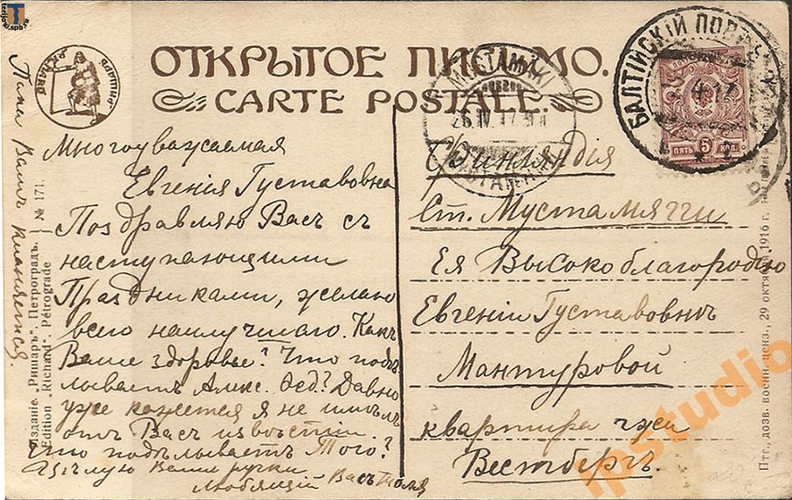 ОТКРЫТОЕ ПИСЬМО.
CARTE POSTALE.
РИШАРЪ
БАЛТІЙСКІЙ ПОРТ
4 17
ПЯТЬ 5 КОП
26.IV.17
Многоуважаемая
Евгенія Густавовна
Поздравляю Васъ съ
наступающими
Праздниками, желаю
всего наилучшаго. Какъ
Ваше здоровье? Что подѣ-
лываетъ Алекс. Ѳед? Давно
уже кажется я не имѣлъ
отъ Васъ извѣстій.
Что подѣлываетъ Того?
Цѣлую Ваши ручки
Любящій Васъ Толя
Папа Вамъ кланяется.
Финляндія
Ст. Мустамякки
Ея Высокоблагородію
Евгеніи Густавовнѣ
Мантуровой
квартира г-жи
Вестбергъ.
Изданіе „Ришаръ“. Петроградъ. № 171.
Edition „Richard“. Pétrograde
Птг., дозв. воен. ценз., 29 октября 1916 г.
ipstudio